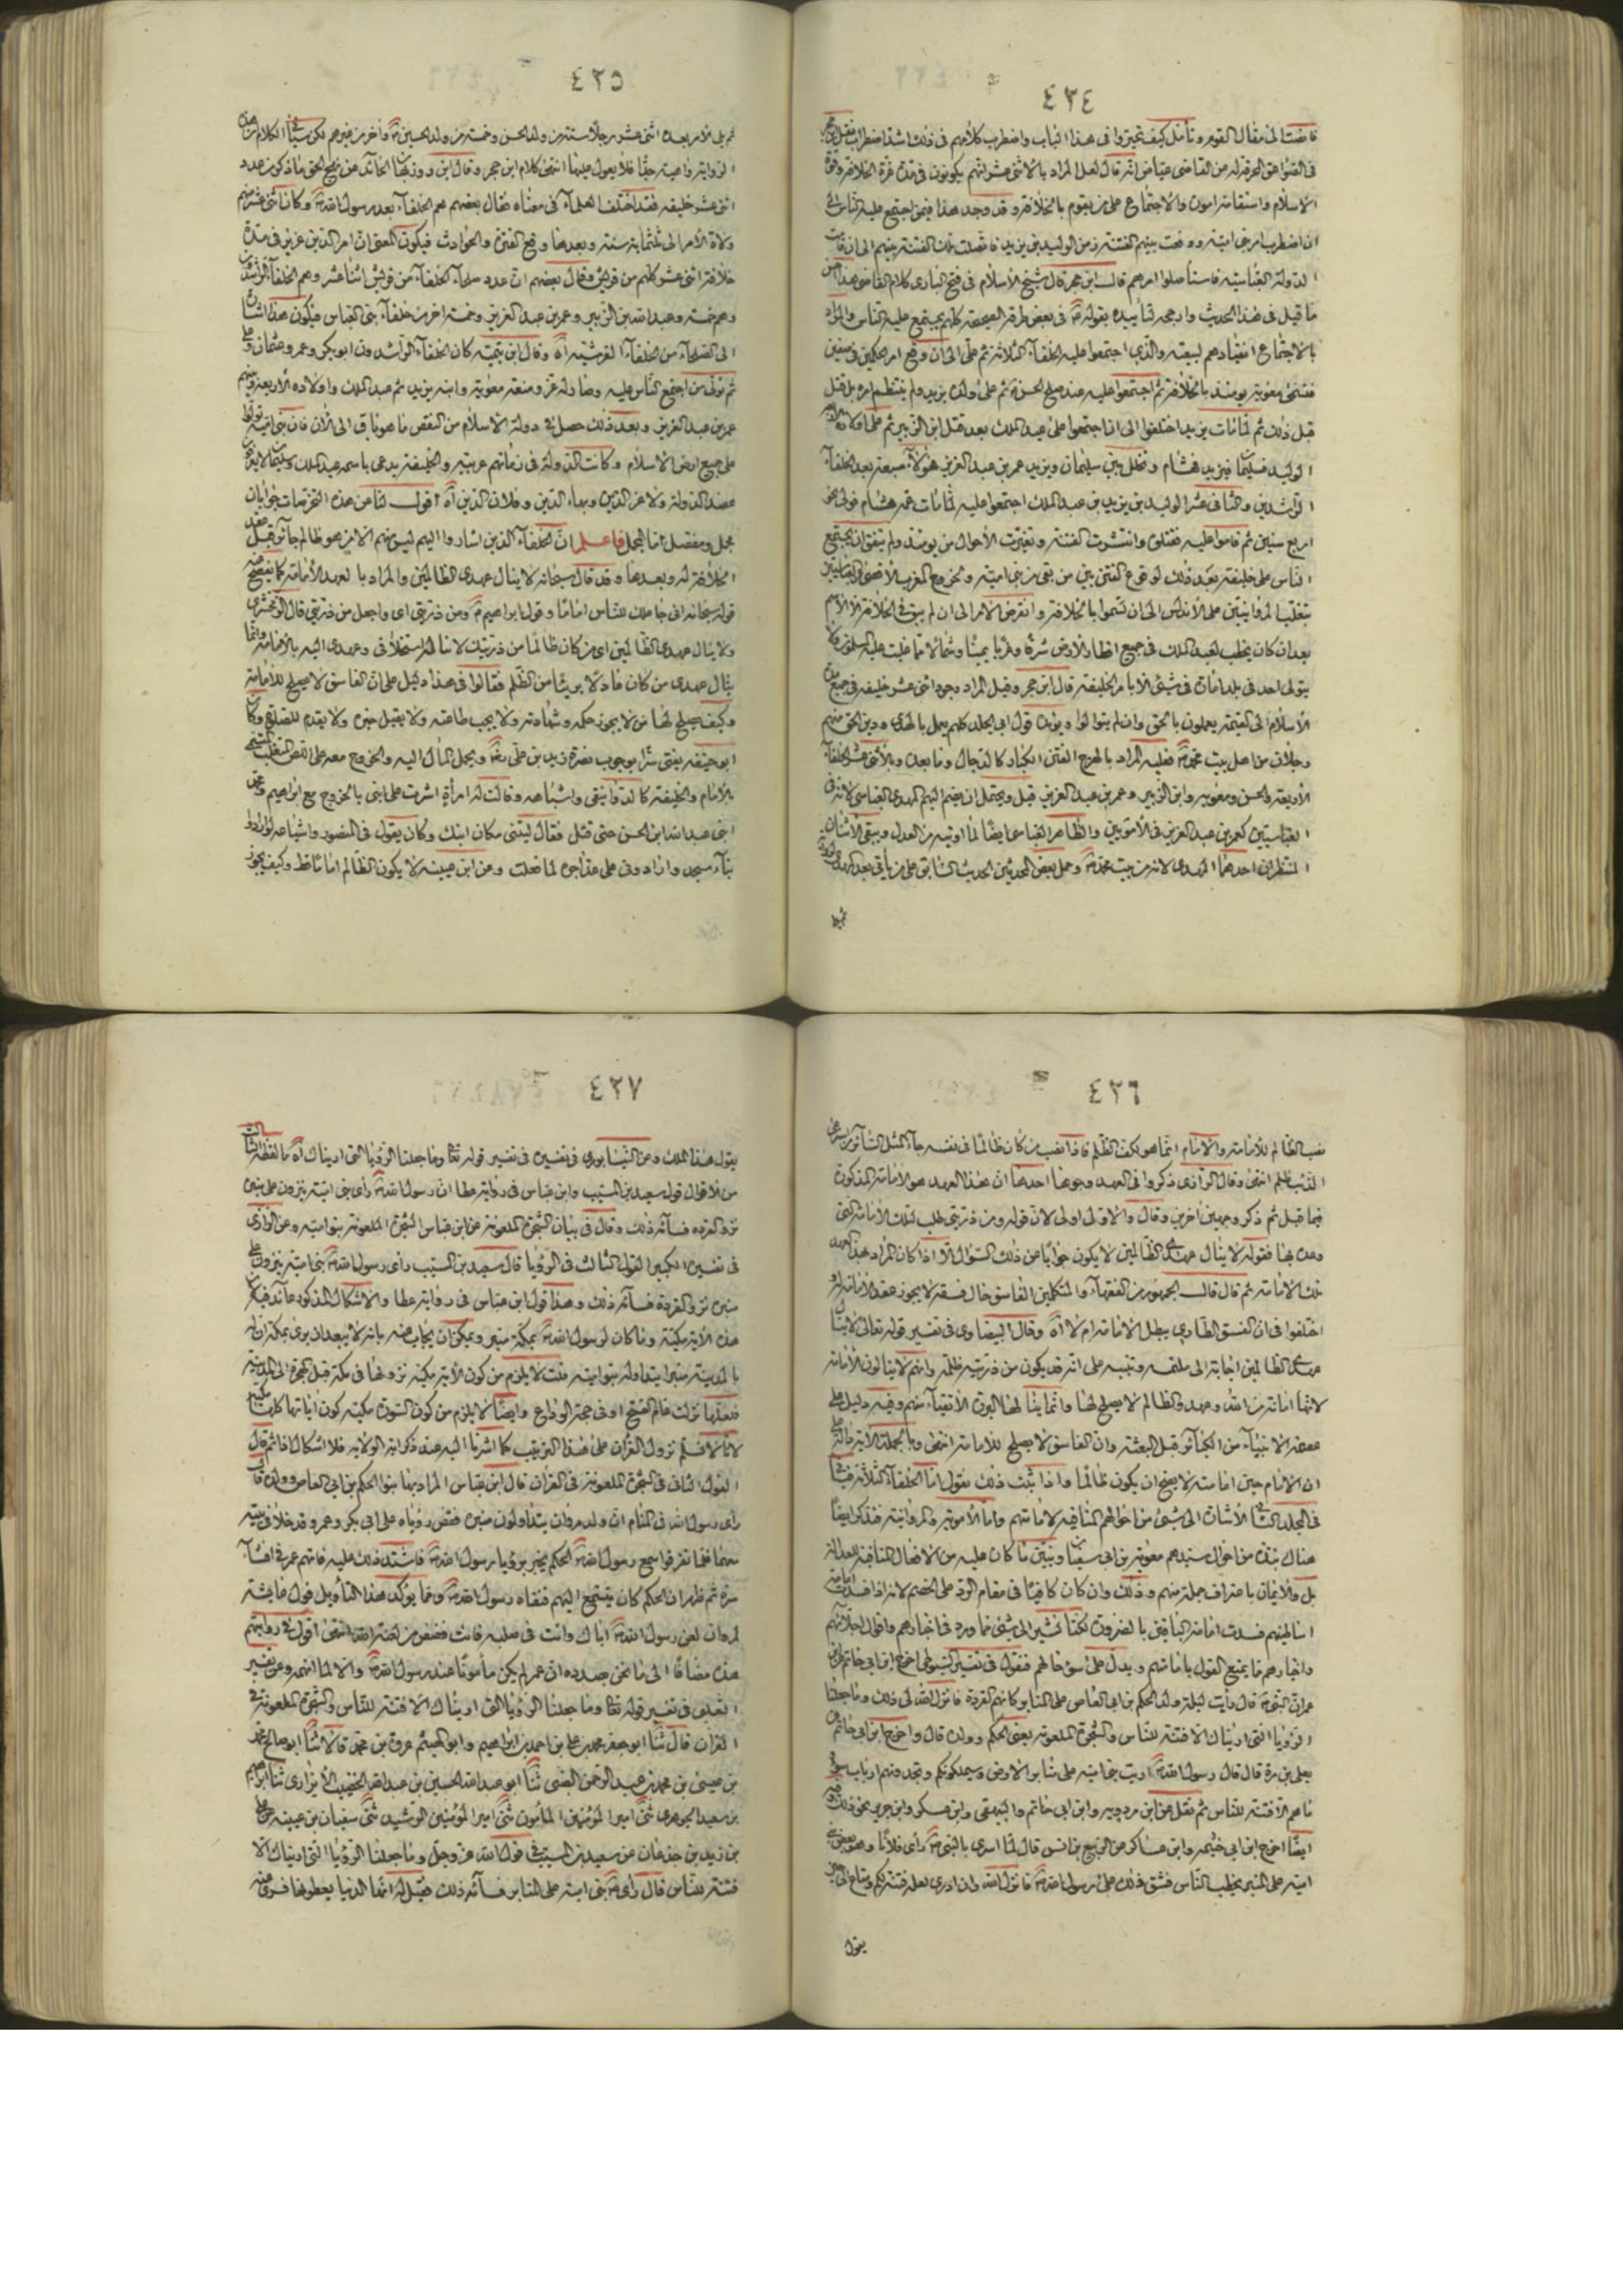 ٤٢٤
فاستمع الى مقال القوم وتأمل كيف تحيروا فى هذا الباب واضطرب كلامهم فى ذلك اشد اضطراب نقل ابن حجر
فى الصواعق المحرقة عن القاضى عياض انه قال لعل المراد بالاثنى عشر انهم يكونون فى مدة عزة الخلافة وقوة
الاسلام واستقامة اموره والاجتماع على من يقوم بالخلافة وقد وجد هذا فيمن اجتمع عليه الناس الى
ان اضطرب امر بنى امية ووقعت بينهم الفتنة زمن الوليد بن يزيد فاتصلت تلك الفتنة بينهم الى ان قامت
الدولة العباسية فاستأصلوا امرهم قال ابن حجر قال شيخ الاسلام فى فتح البارى كلام القاضى هذا احسن
ما قيل فى هذا الحديث وارجحه لتأييده بقوله ص فى بعض طرقه الصحيحة كلهم يجتمع عليه الناس والمراد
بالاجتماع انقيادهم لبيعته والذى اجتمعوا عليه الخلفاء الثلاثة ثم على الى ان وقع امر الحكمين فى صفين
فتسمى معوية يومئذ بالخلافة ثم اجتمعوا عليه عند صلح الحسن ثم على ولده يزيد ولم ينتظم امره بل قتل
قبل ذلك ثم لما مات يزيد اختلفوا الى ان اجتمعوا على عبد الملك بعد قتل ابن الزبير ثم على اولاده الاربعة
الوليد فسليمان فيزيد فهشام وتخلل بين سليمان ويزيد عمر بن عبد العزيز فهؤلاء سبعة بعد الخلفاء
الراشدين والثانى عشر الوليد بن يزيد بن عبد الملك اجتمعوا عليه لما مات عمه هشام فولى نحو
اربع سنين ثم قاموا عليه فقتلوه وانتشرت الفتنة وتغيرت الاحوال من يومئذ ولم يتفق ان يجتمع
الناس على خليفة بعد ذلك لوقوع الفتن بين من بقى من بنى امية ولخروج المغرب الاقصى عن العباسيين
بتغلب المروانيين على الاندلس الى ان تسموا بالخلافة وانقرض الامر الى ان لم يبق فى الخلافة الا الاسم
بعد ان كان يخطب لعبد الملك فى جميع اقطار الارض شرقا وغربا يمينا وشمالا مما غلب عليه المسلمون ولا
يتولى احد فى بلد امارة فى شىء الا بامر الخليفة قال ابن حجر وقيل المراد وجود اثنى عشر خليفة فى جميع مدة
الاسلام الى القيمة يعملون بالحق وان لم يتوالوا ويؤيده قول ابى الجلد كلهم يعمل بالهدى ودين الحق منهم
رجلان من اهل بيت محمد ص فعليه المراد بالهرج الفتن الكبار كالدجال وما بعده وبالاثنى عشر الخلفاء
الاربعة والحسن ومعوية وابن الزبير وعمر بن عبد العزيز قيل ويحتمل ان يضم اليهم المهدى العباسى لانه فى
العباسيين كعمر بن عبد العزيز فى الامويين والطاهر العباسى ايضا لما اوتيه من العدل ويبقى الاثنان
المنتظران احدهما المهدى لانه من بيت محمد ص وحمل بعض المحدثين الحديث السابق على من يأتى بعد المهدى لرواية
ثم يلى
٤٢٥
ثم يلى الامر بعده اثنى عشر رجلا ستة من ولد الحسن وخمسة من ولد الحسين ع واخر من غيرهم لكن سيأتى الكلام على هذه
الرواية واهية جدا فلا يعول عليها انتهى كلام ابن حجر وقال ابن روزبهان الحائد عن نهج الحق ما ذكر من عدد
اثنى عشر خليفة فقد اختلف العلماء فى معناه فقال بعضهم هم الخلفاء بعد رسول الله ص وكان اثنى عشر منهم
ولاة الامر الى ثلثمائة سنة وبعدها وقع الفتن والحوادث فيكون المعنى ان امر الدين عزيز فى مدة
خلافة اثنى عشر كلهم من قريش وقال بعضهم ان عدد صلحاء الخلفاء من قريش اثنا عشر وهم الخلفاء الراشدون
وهم خمسة وعبد الله بن الزبير وعمر بن عبد العزيز وخمسة اخر من خلفاء بنى العباس فيكون هذا اشارة
الى الصلحاء من الخلفاء القرشية اه وقال ابن تيمية كان الخلفاء الراشدون ابو بكر وعمر وعثمان وعلى
ثم تولى من اجتمع الناس عليه وصار له عز ومنعة معوية وابنه يزيد ثم عبد الملك واولاده الاربعة وبينهم
عمر بن عبد العزيز وبعد ذلك حصل فى دولة الاسلام من النقص ما هو باق الى الان فان بنى امية تولوا
على جميع ارض الاسلام وكانت الدولة فى زمانهم عربية والخليفة يدعى باسمه عبد الملك وسليمان لا يعرفون
عضد الدولة ولا عز الدين وبهاء الدين وفلان الدين اه اقول لنا عن هذه التخرصات جوابان
مجمل ومفصل اما المجمل فاعلم ان الخلفاء الذين اشاروا اليهم ليس منهم الا من هو ظالم جائر قبل عقد
الخلافة له وبعدها وقد قال سبحانه لا ينال عهدى الظالمين والمراد بالعهد الامامة كما يفصح عنه
قوله سبحانه انى جاعلك للناس اماما وقول ابراهيم ع ومن ذريتى اى واجعل من ذريتى قال الزمخشرى
ولا ينال عهدى الظالمين اى من كان ظالما من ذريتك لا يناله استخلافى وعهدى اليه بالامامة وانما
ينال عهدى من كان عادلا بريئا من الظلم فقالوا فى هذا دليل على ان الفاسق لا يصلح للامامة
وكيف يصلح لها من لا يجوز حكمه وشهادته ولا يجب طاعته ولا يقبل خبره ولا يقدم للصلوة وكان
ابو حنيفة يفتى سرا بوجوب نصرة زيد بن على رض وبحمل المال اليه والخروج معه على اللص المتغلب المتسمى
بالامام والخليفة كالدوانيقى واشباهه وقالت له امرأة اشرت على ابنى بالخروج مع ابراهيم ومحمد
ابنى عبد الله ابن الحسن حتى قتل فقال ليتنى مكان ابنك وكان يقول فى المنصور واشياعه لو ارادوا
بناء مسجد وارادونى على عد اجره لما فعلت وعن ابن عيينة لا يكون الظالم اماما قط وكيف يجوز
٤٢٦
نصب الظالم للامامة والامام انما هو لكف الظلمة فاذا نصب من كان ظالما فى نفسه جاء المثل السائر من استرعى
الذئب ظلم انتهى وقال الرازى ذكروا فى العهد وجوها احدها ان هذا العهد هو الامامة المذكورة
فيما قبل ثم ذكر وجهين اخرين وقال والاول اولى لان قوله ومن ذريتى طلب لتلك الامامة التى
وعده بها فقوله لا ينال عهدى الظالمين لا يكون جوابا عن ذلك السؤال الا اذا كان المراد بهذا العهد
تلك الامامة ثم قال قال الجمهور من الفقهاء والمتكلمين الفاسق حال فسقه لا يجوز عقد الامامة له و
اختلفوا فى ان الفسق الطارى يبطل الامامة ام لا اه وقال البيضاوى فى تفسير قوله تعالى لا ينال
عهدى الظالمين اجابة الى ملتمسه وتنبيه على انه قد يكون من ذريته ظلمة وانهم لا ينالون الامامة
لانها امانة من الله وعهد والظالم لا يصلح لها وانما ينالها البررة الاتقياء منهم وفيه دليل على
عصمة الانبياء من الكبائر قبل البعثة وان الفاسق لا يصلح للامامة انتهى وبالجملة الاية دالة على
ان الامام حين امامته لا يصح ان يكون ظالما واذا ثبت ذلك نقول اما الخلفاء الثلاثة فيأتى
فى المجلد الثانى الاشارة الى شىء من احوالهم المنافية لامامتهم واما الاموية والمروانية فنذكر ايضا
هناك نبذة من احوال سيدهم معوية بن ابى سفيان ونبين ما كان عليه من الافعال المنافية للعدالة
بل والايمان باعتراف جملة منهم وذلك وان كان كافيا فى مقام الرد على الخصم لانه اذا فسدت امامة
اساطينهم فسدت امامة الباقين بالضرورة لكنا نشير الى شىء مما ورد فى اخبارهم واقوال اجلائهم
واخبارهم ما يمنع القول بامامتهم ويدل على سوء حالهم فنقول فى تفسير السيوطى اخرج ابن ابى حاتم عن ابن
عمر ان النبى ص قال رأيت ليلة ولد الحكم بن ابى العاص على المنابر كانهم القردة فانزل الله فى ذلك وما جعلنا
الرؤيا التى اريناك الا فتنة للناس والشجرة الملعونة يعنى الحكم وولده قال واخرج ابن ابى حاتم عن
يعلى بن مرة قال قال رسول الله ص اريت بنى امية على منابر الارض وسيملكونكم وتجدونهم ارباب سوء
ما هم الا فتنة للناس ثم نقل عن ابن مردويه وابن ابى حاتم والبيهقى وابن عساكر وابن جرير نحو ذلك وفيه
ايضا اخرج ابن ابى خيثمة وابن عساكر عن الربيع بن انس قال لما اسرى بالنبى ص رأى فلانا وهو بعض بنى
امية على المنبر يخطب الناس فشق ذلك على رسول الله ص فانزل الله وان ادرى لعله فتنة لكم ومتاع الى حين
يقول
٤٢٧
يقول هذا الملك وعن النيسابورى فى تفسيره فى تفسير قوله تعالى وما جعلنا الرؤيا التى اريناك اه ما لفظه الثالث
من الاقوال قول سعيد بن المسيب وابن عباس فى رواية عطا ان رسول الله ص رأى بنى امية ينزون على منبره
نزو القردة فساءه ذلك وقال فى بيان الشجرة الملعونة عن ابن عباس الشجرة الملعونة بنو امية وعن الرازى
فى تفسيره الكبير القول الثالث فى الرؤيا قال سعيد بن المسيب رأى رسول الله ص بنى امية ينزون على
منبره نزو القردة فساءه ذلك وهذا قول ابن عباس فى رواية عطا والاشكال المذكور عائد فيه لان
هذه الاية مكية وما كان لرسول الله ص بمكة منبر ويمكن ان يجاب عنه بانه لا يبعد ان يرى بمكة ان له
بالمدينة منبرا يتداوله بنو امية قلت لا يلزم من كون الاية مكية نزولها فى مكة قبل الهجرة الى المدينة
فلعلها نزلت عام الفتح او فى حجة الوداع وايضا لا يلزم من كون السورة مكية كون اياتها كلها مكية
لانا لا نسلم نزول القران على هذا الترتيب كما اشرنا اليه عند ذكر اية الولاية فلا اشكال اذا ثم قال
القول الثانى فى الشجرة الملعونة فى القران قال ابن عباس المراد بها بنو الحكم بن ابى العاص وولده قال
رأى رسول الله فى المنام ان ولد مروان يتداولون منبره فقص رؤياه على ابى بكر وعمر وقد خلا فى بيته
معهما فلما تفرقوا سمع رسول الله ص الحكم يخبر برؤيا رسول الله ص فاشتد ذلك عليه فاتهم عمر فى افشاء
سره ثم ظهر ان الحكم كان يتسمع اليهم فنفاه رسول الله ص ومما يؤكد هذا التأويل قول عايشة
لمروان لعن رسول الله ص اباك وانت فى صلبه فانت فضض من لعنه الله انتهى اقول فى روايتهم
هذه مضافا الى ما نحن بصدده ان عمر لم يكن مأمونا عند رسول الله ص والا لما اتهمه وعن تفسير
الثعلبى فى تفسير قوله تعالى وما جعلنا الرؤيا التى اريناك الا فتنة للناس والشجرة الملعونة فى
القران قال ثنا ابو جعفر محمد بن على بن احمد بن ابراهيم وابو الهيثم مروق بن محمد قالا ثنا ابو صالح محمد
بن عيسى بن محمد بن عبد الرحمن الضبى ثنا ابو عبد الله الحسين بن عبد الله الخضيب الابزارى ثنا ابراهيم
بن سعيد الجوهرى ثنى امير المؤمنين المأمون ثنى امير المؤمنين الرشيد ثنى سفيان بن عيينة عن على
بن زيد بن جذعان عن سعيد بن المسيب فى قول الله عز وجل وما جعلنا الرؤيا التى اريناك الا
فتنة للناس قال رأى ص بنى امية على المنابر فساءه ذلك فقيل له انها الدنيا يعطونها فسرى عنه